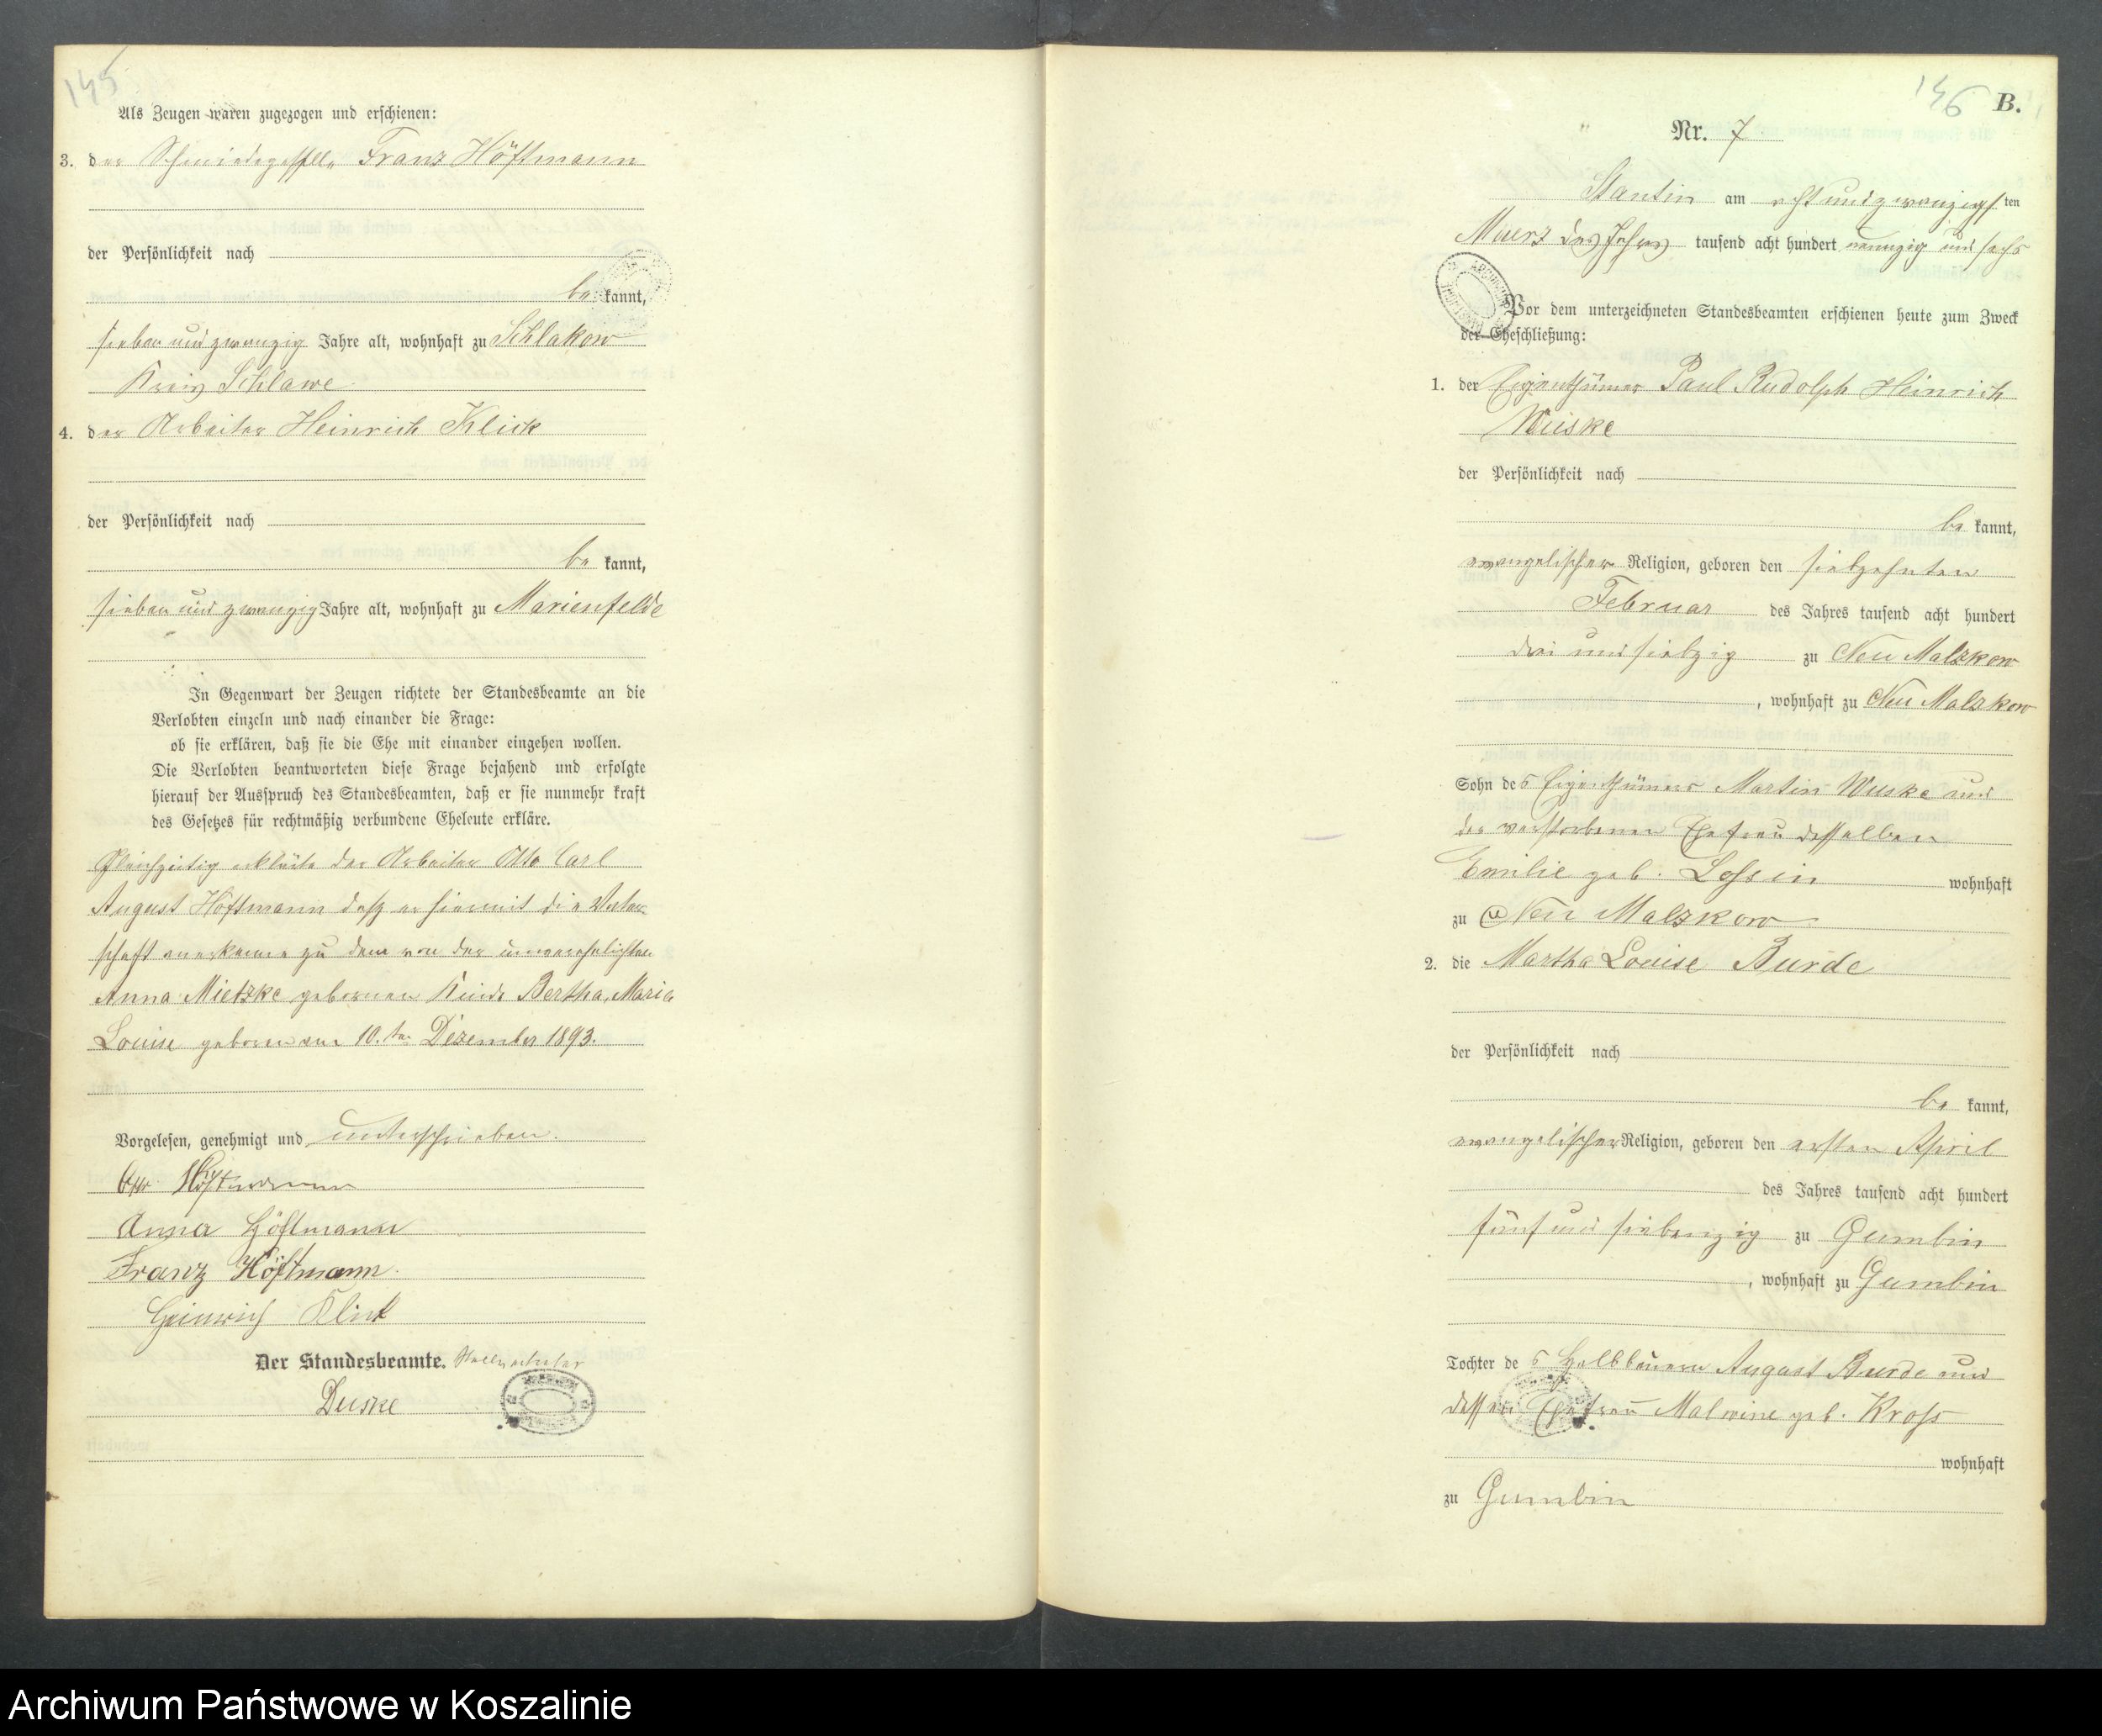 145
Als Zeugen waren zugezogen und erschienen:
3. der Schmiedegeselle Franz Höftmann
der Persönlichkeit nach
be kannt,
sieben und zwanzig Jahre alt, wohnhaft zu Schlakow
Kreis Schlawe
4. der Arbeiter Heinrich Klick
der Persönlichkeit nach
be kannt,
sieben und zwanzig Jahre alt, wohnhaft zu Marienfelde
In Gegenwart der Zeugen richtete der Standesbeamte an die
Verlobten einzeln und nach einander die Frage:
ob sie erklären, daß sie die Ehe mit einander eingehen wollen.
Die Verlobten beantworteten diese Frage bejahend und erfolgte
hierauf der Ausspruch des Standesbeamten, daß er sie nunmehr kraft
des Gesetzes für rechtmäßig verbundene Eheleute erkläre.
Gleichzeitig erklärte der Arbeiter Otto Carl
August Höftmann daß er hiermit die Vater-
schaft anerkenne zu dem von der unverehelichten
Anna Mietzke geborenen Kinde Bertha, Marie
Louise geboren am 10. ten Dezember 1893.
Vorgelesen, genehmigt und unterschrieben.
Otto Höftmann
Anna Höftmann
Franz Höftmann.
Heinrich Klick
Der Standesbeamte. Stellvertreter
Duske
146
B.
Nr. 7
Stantin am acht und zwanzigs ten
Maerz des Jahres tausend acht hundert neunzig und sechs
Vor dem unterzeichneten Standesbeamten erschienen heute zum Zweck
der Eheschließung:
1. der Eigenthümer Paul Rudolph Heinrich
Wuske
der Persönlichkeit nach
be kannt,
evangelischer Religion, geboren den siebzehnten
Februar des Jahres tausend acht hundert
drei und siebzig zu Neu Malzkow
, wohnhaft zu Neu Malzkow
Sohn des Eigenthümers Martin Wuske und
der verstorbenen Ehefrau desselben
Emilie geb. Lossin wohnhaft
zu Neu Malzkow
2. die Martha Louise Burde
der Persönlichkeit nach
be kannt,
evangelischer Religion, geboren den ersten April
des Jahres tausend acht hundert
fünf und siebenzig zu Gumbin
, wohnhaft zu Gumbin
Tochter des Halbbauern August Burde und
dessen Ehefrau Malwine geb. Kross
wohnhaft
zu Gumbin
Archiwum Państwowe w Koszalinie